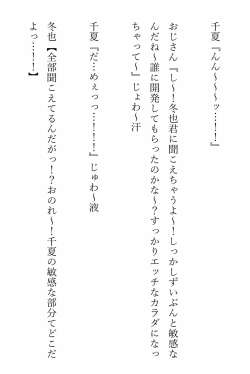 千夏『んん~~~ッ…!!』
おじさん『し~!冬也君に聞こえちゃうよ~!しっかしずいぶんと敏感な
んだね~誰に開発してもらったのかな~?すっかりエッチなカラダになっ
ちゃって~』じょわ~汗
千夏『だ…めぇっっ…!!!』じゅわ~液
冬也【全部聞こえてるんだがっ!?おのれ~!千夏の敏感な部分てどこだ
よっ…!!】